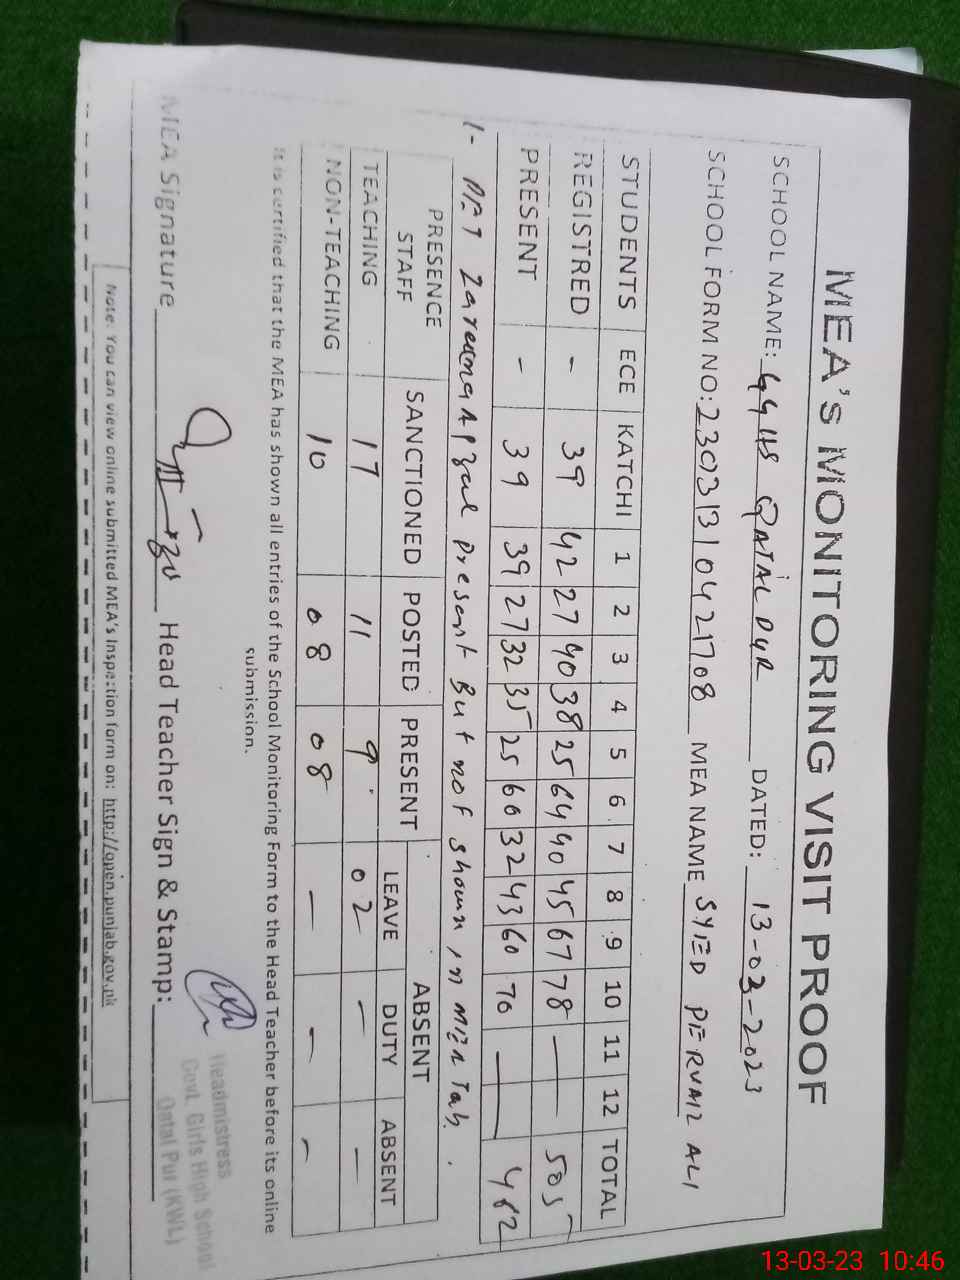 MEA's MONITORING VISIT PROOF
SCHOOL NAME: GGHS QATAL PUR DATED: 13-03-2023
SCHOOL FORM NO: 23031310421708 MEA NAME SYIED PERVAIZ ALI
STUDENTS ECE KATCHI 1 2 3 4 5 6 7 8 9 10 11 12 TOTAL
REGISTRED - 39 42 27 40 38 25 64 40 45 67 78 — — 505
PRESENT - 39 39 27 32 35 25 60 32 43 60 70 — — 462
1- present But not shown in MEA Tab.
PRESENCE STAFF SANCTIONED POSTED PRESENT ABSENT
LEAVE DUTY ABSENT
TEACHING 17 11 9 02 — —
NON-TEACHING 10 08 08 — — —
It is certified that the MEA has shown all entries of the School Monitoring Form to the Head Teacher before its online
submission.
MEA Signature Head Teacher Sign & Stamp:
Headmistress
Govt. Girls High School
Qatal Pur (KWL)
Note: You can view online submitted MEA's Inspection form on: http://open.punjab.gov.pk
13-03-23 10:46